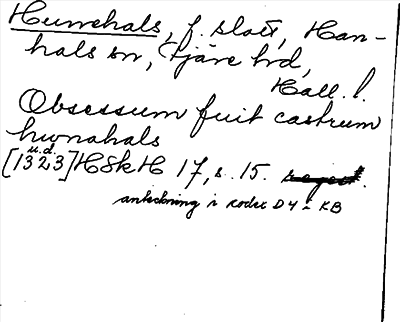 Hunehals, f. slott, Han-
hals sn, Fjäre hd,
Hall. l.
Obsessum fuit castrum
hwnahals
u.d.
[1323] HSkH 17, s. 15.
anteckning i codex D4 i KB